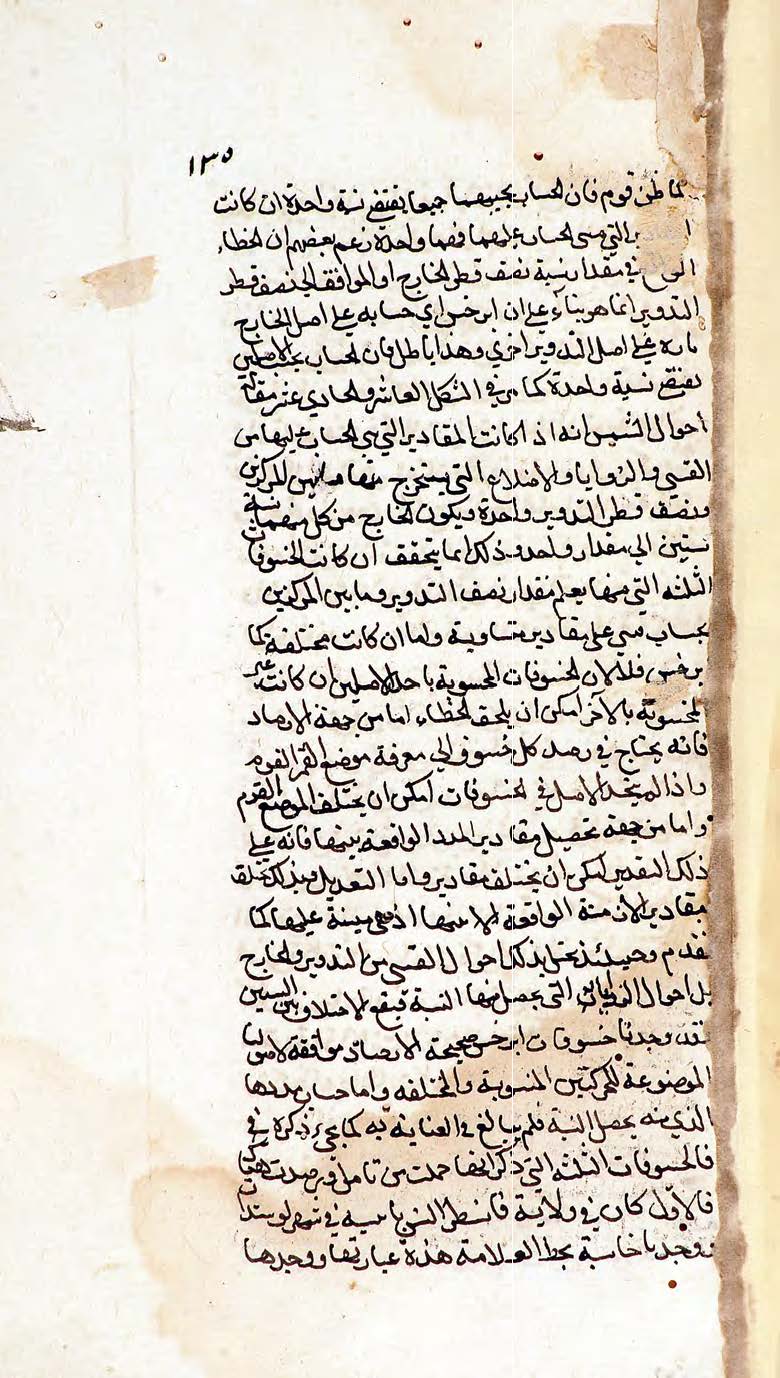 ١٣٥
كما ظن قوم فان الحساب بجميعهما جميعا يقتضي نسبة واحدة ان كانت
التي مبنى الحساب عليهما فيهما واحدة زعم بعضهم ان الخطاء
في مقدار نسبة نصف قطر الخارج او الموافق الى نصف قطر
التدوير انما هو بناء على ان ابرخس اي حسابه على اصل الخارج
تارة وعلى اصل التدوير اخرى وهذا باطل فان الحساب بحسب الاصلين
يقتضي نسبة واحدة كما مر في الشكل العاشر والحادي عشر من مقالة
احوال الشمس انه اذا كانت المقادير التي هي الحساب عليها من
القسي والزوايا والاضلاع التي يستخرج منها ما بين المركزين
ونصف قطر التدوير واحدة ويكون الخارج من كل منهما نسبة
ستين الى مقدار واحد وذلك انما يتحقق ان كانت الخسوفات
الثلثه التي منها يعلم مقدار نصف التدوير وما بين المركزين
بحساب مبني على مقادير متساوية واما ان كانت مختلفة كما
ابرخس فلا لان الخسوفات المحسوبة باحد الاصلين ان كانت غير
المحسوبة بالآخر امكن ان يلحق الخطاء اما من جهة الارصاد
فانه يحتاج في رصد كل خسوف الى معرفة موضع القمر المقوم
واذا لم يتحد الاصل في الخسوفات امكن ان يختلف الموضع المقوم
واما من جهة تحصيل مقادير المدد الواقعة بينها فانه على
ذلك التقدير امكن ان يختلف مقادير واما التعديل وبذلك يختلف
مقادير الازمنة الواقعة بينها اذ هي مبنية عليها كما
تقدم وحينئذ يختل بذلك احوال القسي من التدوير والخارج
بل احوال الزوايا التي يحصل منها النسبة فيقع الاختلاف بين النسبتين
فقد وجدنا خسوفات ابرخس صحيحة الارصاد موافقة لاصولنا
الموضوعة للحركتين المستوية والمختلفة واما حساب مددها
الذي منه يحصل النسبة فلم يبالغ في العناية به كما يجيء ذكره في
فالخسوفات الثلثه التي ذكر انها حملت من تامل قد رصدت هناك
فالاول كان في ولاية فانسطراطس التي باسية في شهر لوسندان
ووجدنا حاشية بخط العلامة هذه عبارتها ووجدها